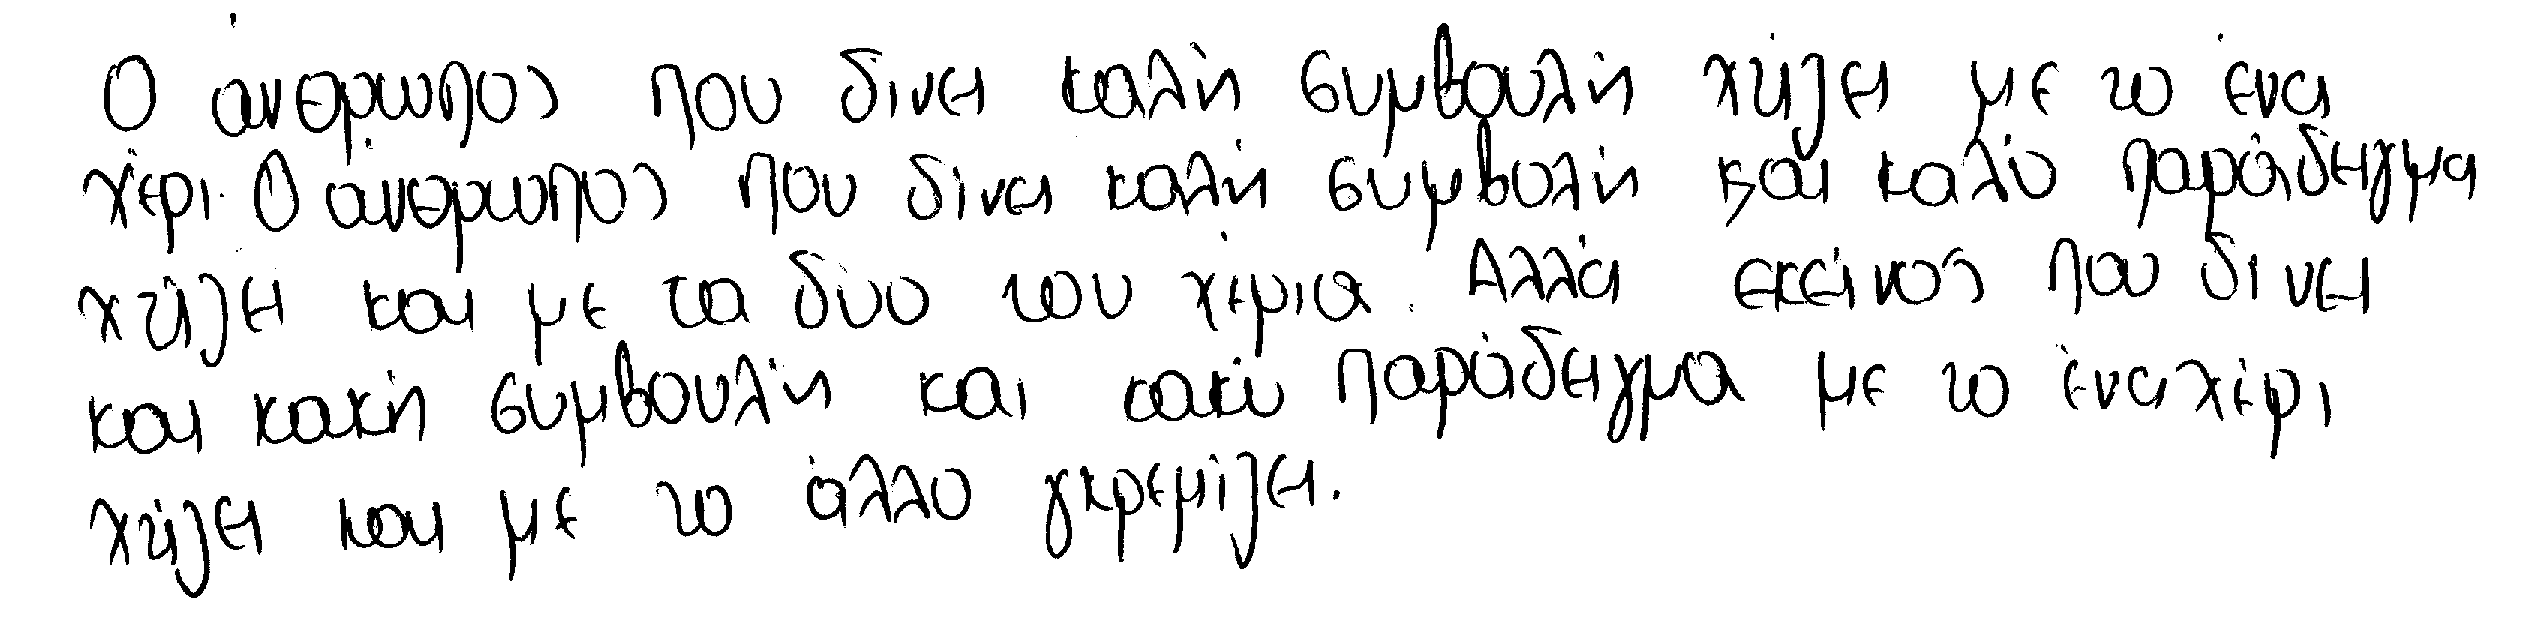 Ο άνθρωπος που δίνει καλή συμβουλή χτίζει με το ένα
χέρι. Ο άνθρωπος που δίνει καλή συμβολή και καλό παράδειγμα
χτίζει και με τα δύο του χέρια. Αλλά εκείνος που δίνει
και κακή συμβουλή και κακό παράδειγμα με το ένα χέρι
χτίζει και με το άλλο γκρεμίζει.